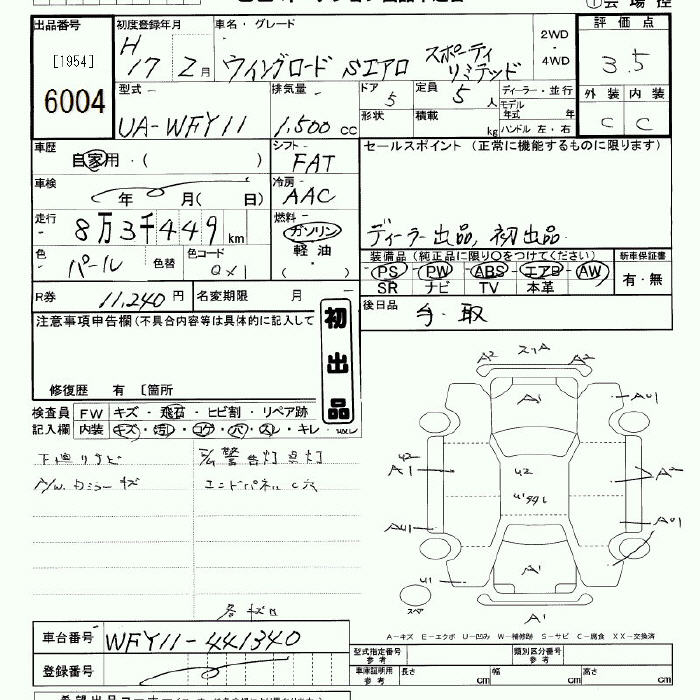 出品番号
[1954]
6004
初度登録年月
H
17 2月
車名・グレード
ウイングロード Sエアロ
スポーティ
リミテッド
2WD
・
4WD
評価点
3.5
外装 内装
C C
型式
UA-WFY11
排気量
1,500 cc
ドア
5
定員
5 人
形状
積載
kg
ディーラー・並行
モデル
年式 年
ハンドル 左・右
車歴
自家用・( )
シフト
FAT
セールスポイント (正常に機能するものに限ります)
ディーラー出品, 初出品
車検
年 月( 日)
冷房
AAC
走行
8万3千449 km
燃料
ガソリン
軽油
( ・ )
色
パール
色替
色コード
QX1
装備品 (純正品に限り○をつけてください)
PS PW ABS エアB AW
SR ナビ TV 本革
新車保証書
有・無
R券
11,240 円
名変期限 月
後日品
手・取
注意事項申告欄 (不具合内容等は具体的に記入して
初出品
修復歴 有 [箇所
検査員
記入欄
FW キズ・飛石・ヒビ割・リペア跡
内装 キズ・汚レ・コゲ・穴・スレ・キレ・
下廻りサビ
警告灯点灯
A/W, カミラーキズ
エンドパネルC穴
A2 スリA A2
A1
A01
U2
A1
U2
A2
AU1
A01
U1
A1
スペア
A1
A-キズ E-エクボ U-凹み W-補修跡 S-サビ C-腐食 XX-交換済
車台番号
WFY11-441340
登録番号
型式指定番号
参考
類別区分番号
参考
車庫証明用
参考
長さ cm 幅 cm 高さ cm